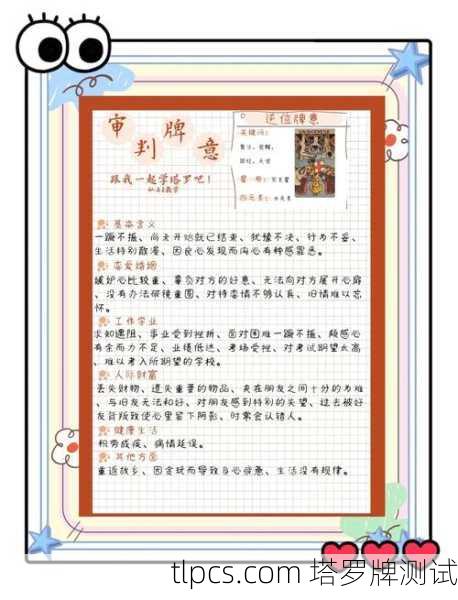 审判牌意
跟我一起学塔罗吧！
逆位牌意
关键词：
复活、觉醒、
四元素：
基本含义
一蹶不振、尚未开始就已结束、犹豫不决、行为不妥、
生活特别散漫、因良心发现而内心有种感罪恶。
恋爱婚姻
嫉妒心比较重、辜负对方的好意、无法向对方展开心扉
、没有办法破镜重圆、对待恋情不够认真、旧情难以忘
怀。
工作学业
求知遇阻、事业受到挫折、面对困难一蹶不振、颇感心
有余而力不足、业绩低迷、考场受挫、对考试期望太高
、难以考入所期望的学校。
人际财富
丢失财物、遗失重要的物品、夹在朋友之间十分的为难
、与旧友无法和好、对朋友感到特别的失望、过去被好
友背叛致使心里留下阴影、时常会认错人。
健康生活
积劳成疾、病情延误。
其他方面
重返故乡、因贪玩而导致身心疲惫、生活没有规律。
tlpcs.com 塔罗牌测试